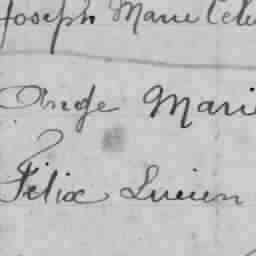 Joseph Marie Cele
Ange Marie
Félix Lucien